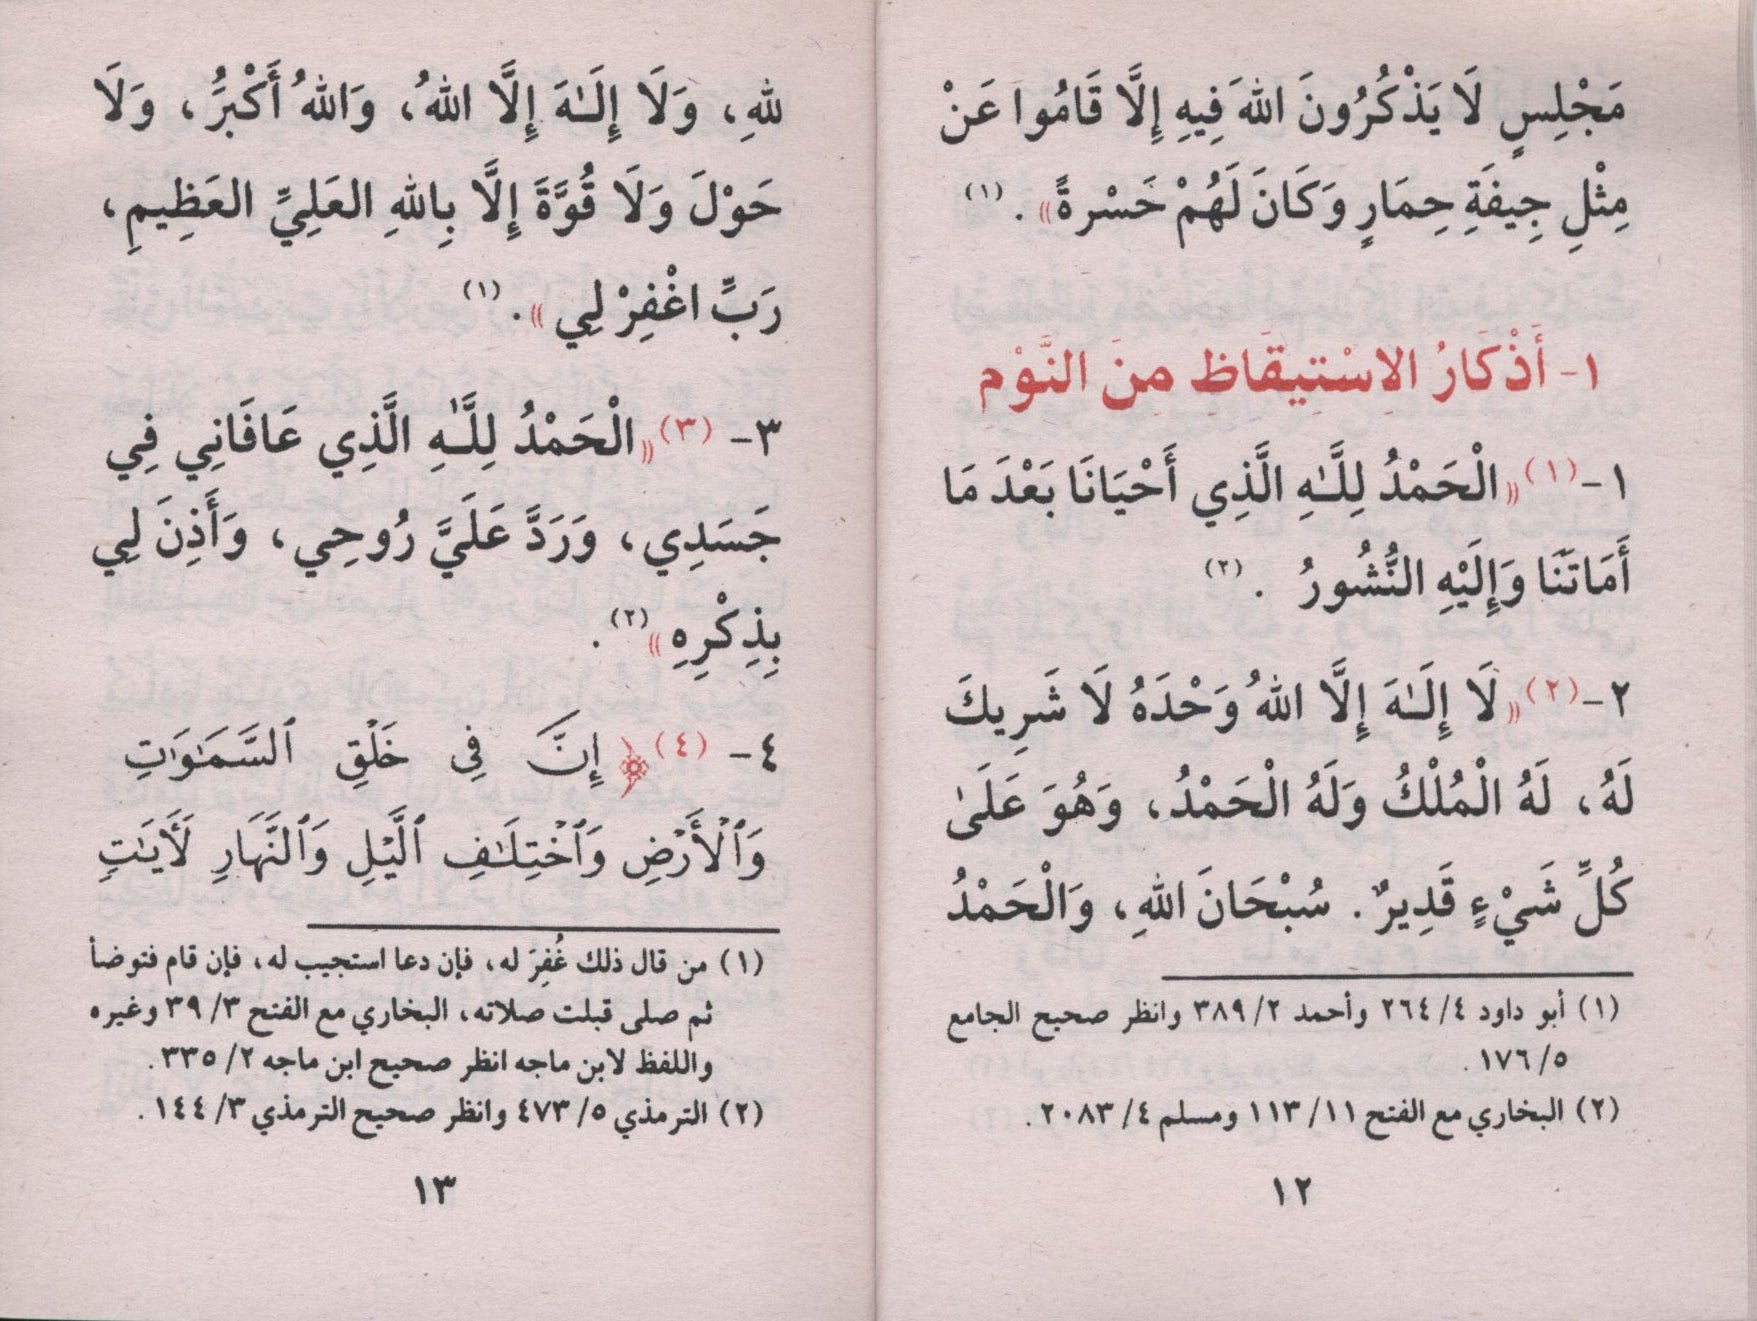 مَجْلِسٍ لَا يَذْكُرُونَ اللهَ فِيهِ إِلَّا قَامُوا عَنْ
مِثْلِ جِيفَةِ حِمَارٍ وَكَانَ لَهُمْ حَسْرةً». (١)
١- أَذْكَارُ الِاسْتِيقَاظِ مِنَ النَّوْمِ
١- (١) «الْحَمْدُ لِلَّـهِ الَّذِي أَحْيَانَا بَعْدَ مَا
أَمَاتَنَا وَإِلَيْهِ النُّشُورُ . (٢)
٢- (٢) «لَا إِلَـٰهَ إِلَّا اللهُ وَحْدَهُ لَا شَرِيكَ
لَهُ، لَهُ الْمُلْكُ وَلَهُ الْحَمْدُ، وَهُوَ عَلَىٰ
كُلِّ شَيْءٍ قَدِيرٌ. سُبْحَانَ اللهِ، وَالْحَمْدُ
(١) أبو داود ٤/ ٢٦٤ وأحمد ٢/ ٣٨٩ وانظر صحيح الجامع
٥/ ١٧٦ .
(٢) البخاري مع الفتح ١١/ ١١٣ ومسلم ٤/ ٢٠٨٣ .
١٢
للهِ، وَلَا إِلَـٰهَ إِلَّا اللهُ، وَاللهُ أَكْبَرُ، وَلَا
حَوْلَ وَلَا قُوَّةَ إِلَّا بِاللهِ العَلِيِّ العَظِيمِ،
رَبِّ اغْفِرْ لِي». (١)
٣- (٣) «الْحَمْدُ لِلَّـهِ الَّذِي عَافَانِي فِي
جَسَدِي، وَرَدَّ عَلَيَّ رُوحِي، وَأَذِنَ لِي
بِذِكْرِهِ»(٢).
٤- (٤) ﴿إِنَّ فِي خَلْقِ ٱلسَّمَٰوَٰتِ
وَٱلْأَرْضِ وَٱخْتِلَٰفِ ٱلَّيْلِ وَٱلنَّهَارِ لَأٓيَٰتٍ
(١) من قال ذلك غُفِرَ له، فإن دعا استجيب له، فإن قام فتوضأ
ثم صلى قبلت صلاته، البخاري مع الفتح ٣/ ٣٩ وغيره
واللفظ لابن ماجه انظر صحيح ابن ماجه ٢/ ٣٣٥.
(٢) الترمذي ٥/ ٤٧٣ وانظر صحيح الترمذي ٣/ ١٤٤ .
١٣